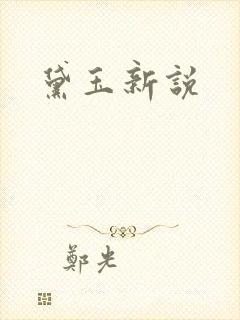 黛玉新說
鄭光